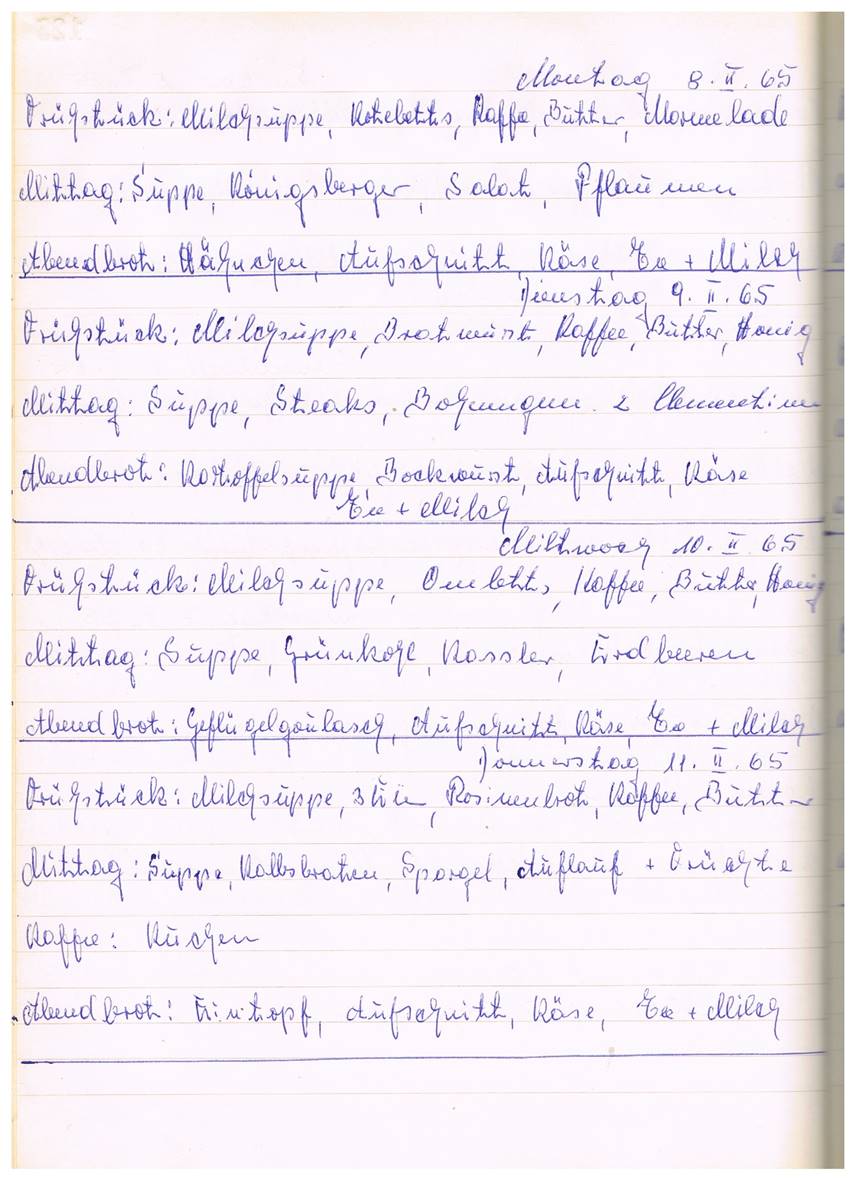 Montag 8. II. 65
Frühstück: Milchsuppe, Koteletts, Kaffe, Butter, Marmelade
Mittag: Suppe, Königsberger, Salat, Pflaumen
Abendbrot: Hähnchen, Aufschnitt, Käse, Tee + Milch
Dienstag 9. II. 65
Frühstück: Milchsuppe, Bratwurst, Kaffee, Butter, Honig
Mittag: Suppe, Steaks, 2 Clementinen
Abendbrot: Kartoffelsuppe, Bockwurst, Aufschnitt, Käse
Tee + Milch
Mittwoch 10. II 65
Frühstück: Milchsuppe, Omletts, Kaffee, Butter, Honig
Mittag: Suppe, Grünkohl, Kassler, Erdbeeren
Abendbrot: Geflügelgoulasch, Aufschnitt, Käse, Tee + Milch
Donnerstag 11. II. 65
Frühstück: Milchsuppe, 3 Eier, Rosinenbrot, Kaffee, Butter
Mittag: Suppe, Kalbsbraten, Spargel, Auflauf + Früchte
Kaffee: Kuchen
Abendbrot: Eintopf, Aufschnitt, Käse, Tee + Milch